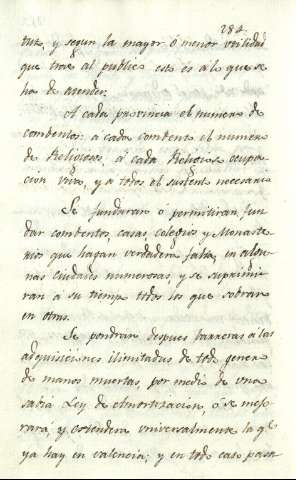 284.
tuto, y segun la mayor ó menor utilidad
que trae al publico esto es á lo que se
ha de atender.
A cada provincia el numero de
combentos: a cada combento el numero
de Religiosos, á cada Religioso ocupa-
cion viva, y a todos el sustento necesario
Se fundaran ó permitiran fun
dar combentos, casas, colegios y Monaste
rios que hagan verdadera falta, en algu-
nas ciudades numerosas, y se suprimi-
ran a su tiempo todos los que sobraren
en otras.
Se pondran despues barreras á las
adquisiciones ilimitadas de todo genero
de manos muertas, por medio de una
sabia Ley de Amortizacion, ó se mejo
rará, y estendera universalmente la qe
ya hay en valencia; y en todo caso para